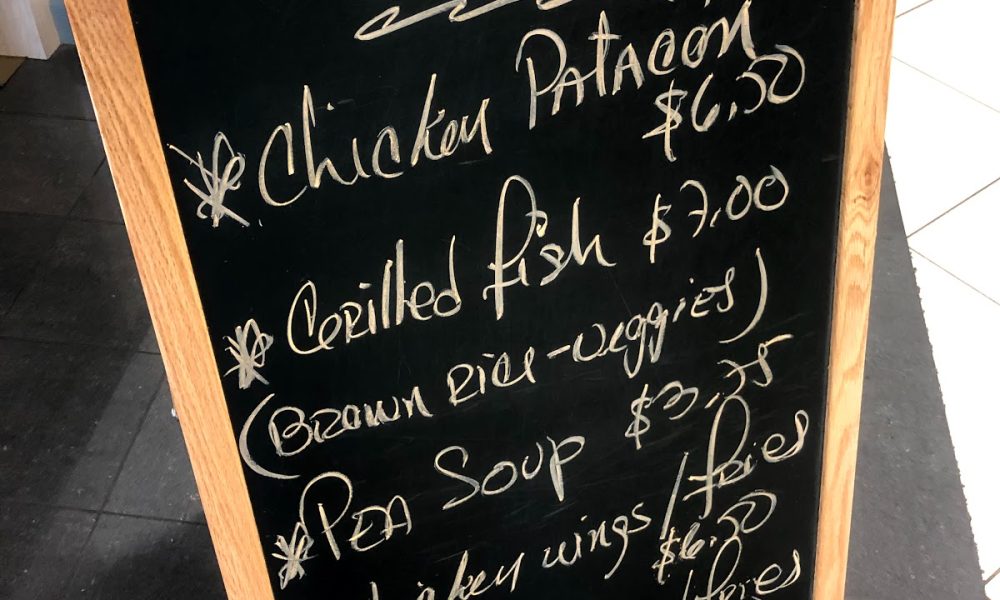 Chicken Patacon
$6.50
Grilled fish $7.00
(Brown Rice - Veggies)
Pea Soup $3.75
Chicken wings/fries
$6.50
/fries